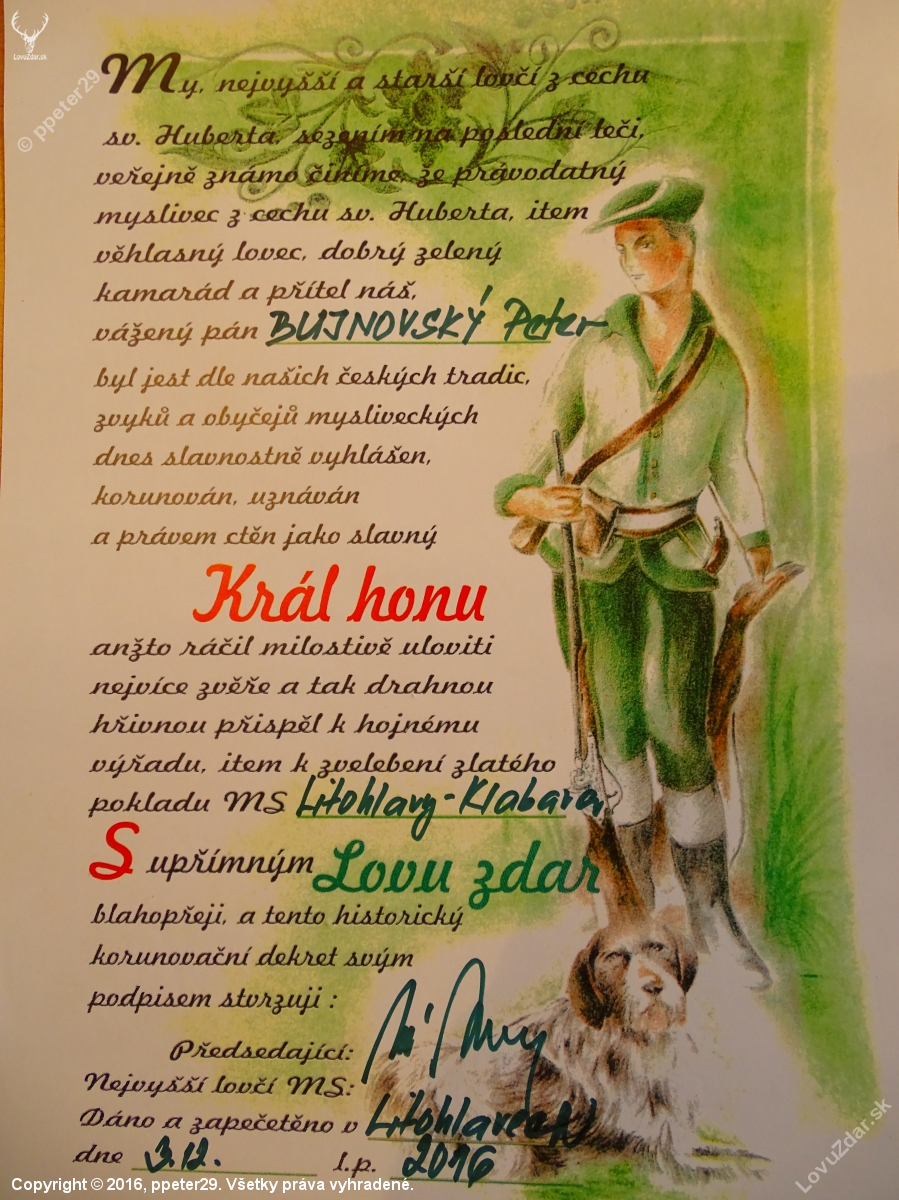 LovuZdar.sk
© ppeter29
My, nejvyšší a starší lovčí z cechu
sv. Huberta, sezením na poslední leči,
veřejně známo činíme, že právodatný
myslivec z cechu sv. Huberta, item
věhlasný lovec, dobrý zelený
kamarád a přítel náš,
vážený pán BUJNOVSKÝ Peter
byl jest dle našich českých tradic,
zvyků a obyčejů mysliveckých
dnes slavnostně vyhlášen,
korunován, uznáván
a právem ctěn jako slavný
Král honu
anžto ráčil milostivě uloviti
nejvíce zvěře a tak drahnou
hřivnou přispěl k hojnému
výřadu, item k zvelebení zlatého
pokladu MS Litohlavy-Klabava
S upřímným Lovu zdar
blahopřeji, a tento historický
korunovační dekret svým
podpisem stvrzuji :
Předsedající:
Nejvyšší lovčí MS:
Dáno a zapečetěno v Litohlavech
dne 3.12. l.p. 2016
LovuZdar.sk
Copyright © 2016, ppeter29. Všetky práva vyhradené.